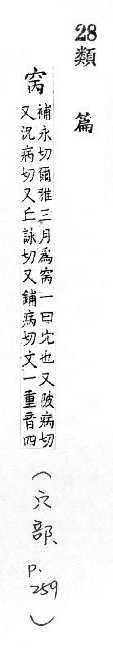 28類
篇
窉
補永切爾雅三月為窉一曰穴也又陂病切
又況病切又丘詠切又鋪病切文一重音四
(穴部、p.259)